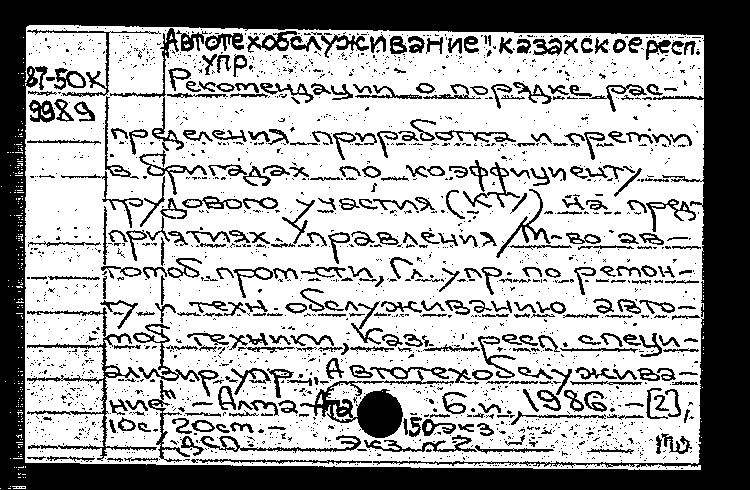 „Автотехобслуживание", казахское респ.
упр.
87-50К
Рекомендации о порядке рас-
9989
пределения приработка и премии
в бригадах по коэффициенту
трудового участия (КТУ) на пред-
приятиях Управления / М-во ав-
томоб. пром-сти, Гл. упр. по ремон-
ту и техн. обслуживанию авто-
моб. техники, Каз. респ. специ-
ализир. упр. „Автотехобслужива-
ние". - Алма-Ата : Б.и., 1986. - [2],
10с.; 20см. - 150экз.
ДСП. Экз. n2.